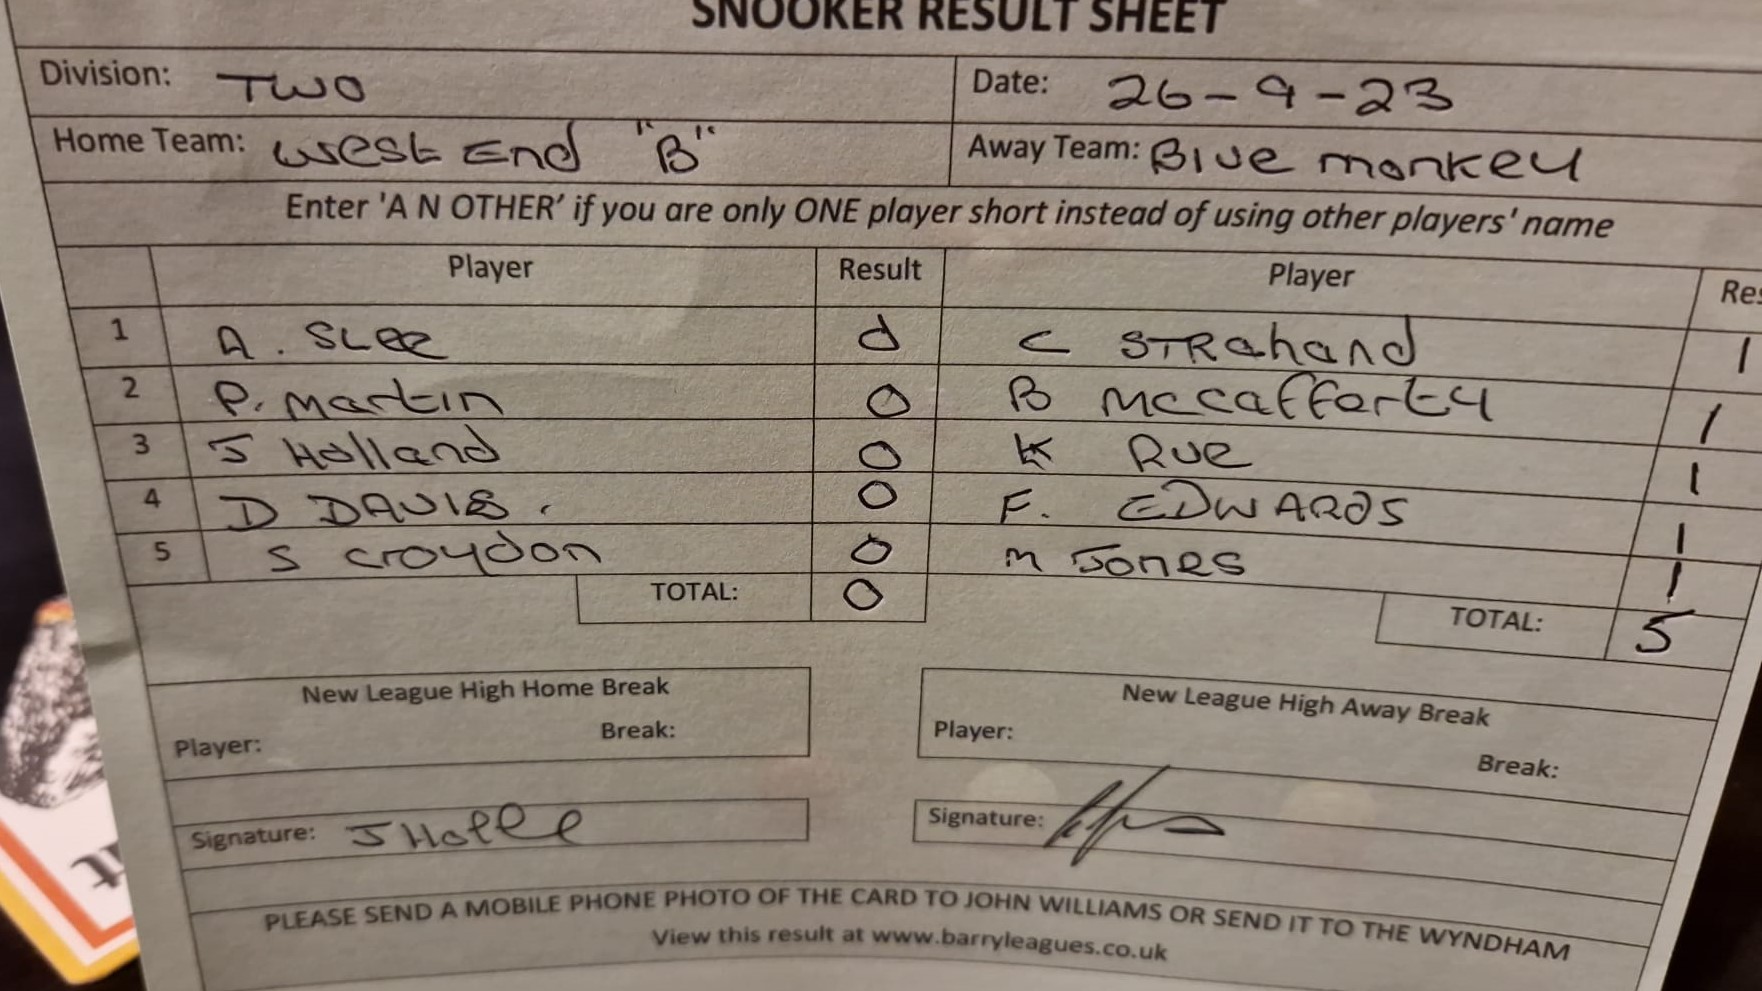 SNOOKER RESULT SHEET
Division: TWO Date: 26-9-23
Home Team: West End "B" Away Team: Blue monkey
Enter 'A N OTHER' if you are only ONE player short instead of using other players' name
Player Result Player Res
1 A. SLee 0 C STRahand 1
2 P. Martin 0 B Mccafferty 1
3 J Holland 0 K Rue 1
4 D DAVIES. 0 F. EDWARDS 1
5 S Croydon 0 M Jones 1
TOTAL: 0 TOTAL: 5
New League High Home Break New League High Away Break
Player: Break: Player: Break:
Signature: J Holl Signature:
PLEASE SEND A MOBILE PHONE PHOTO OF THE CARD TO JOHN WILLIAMS OR SEND IT TO THE WYNDHAM
View this result at www.barryleagues.co.uk